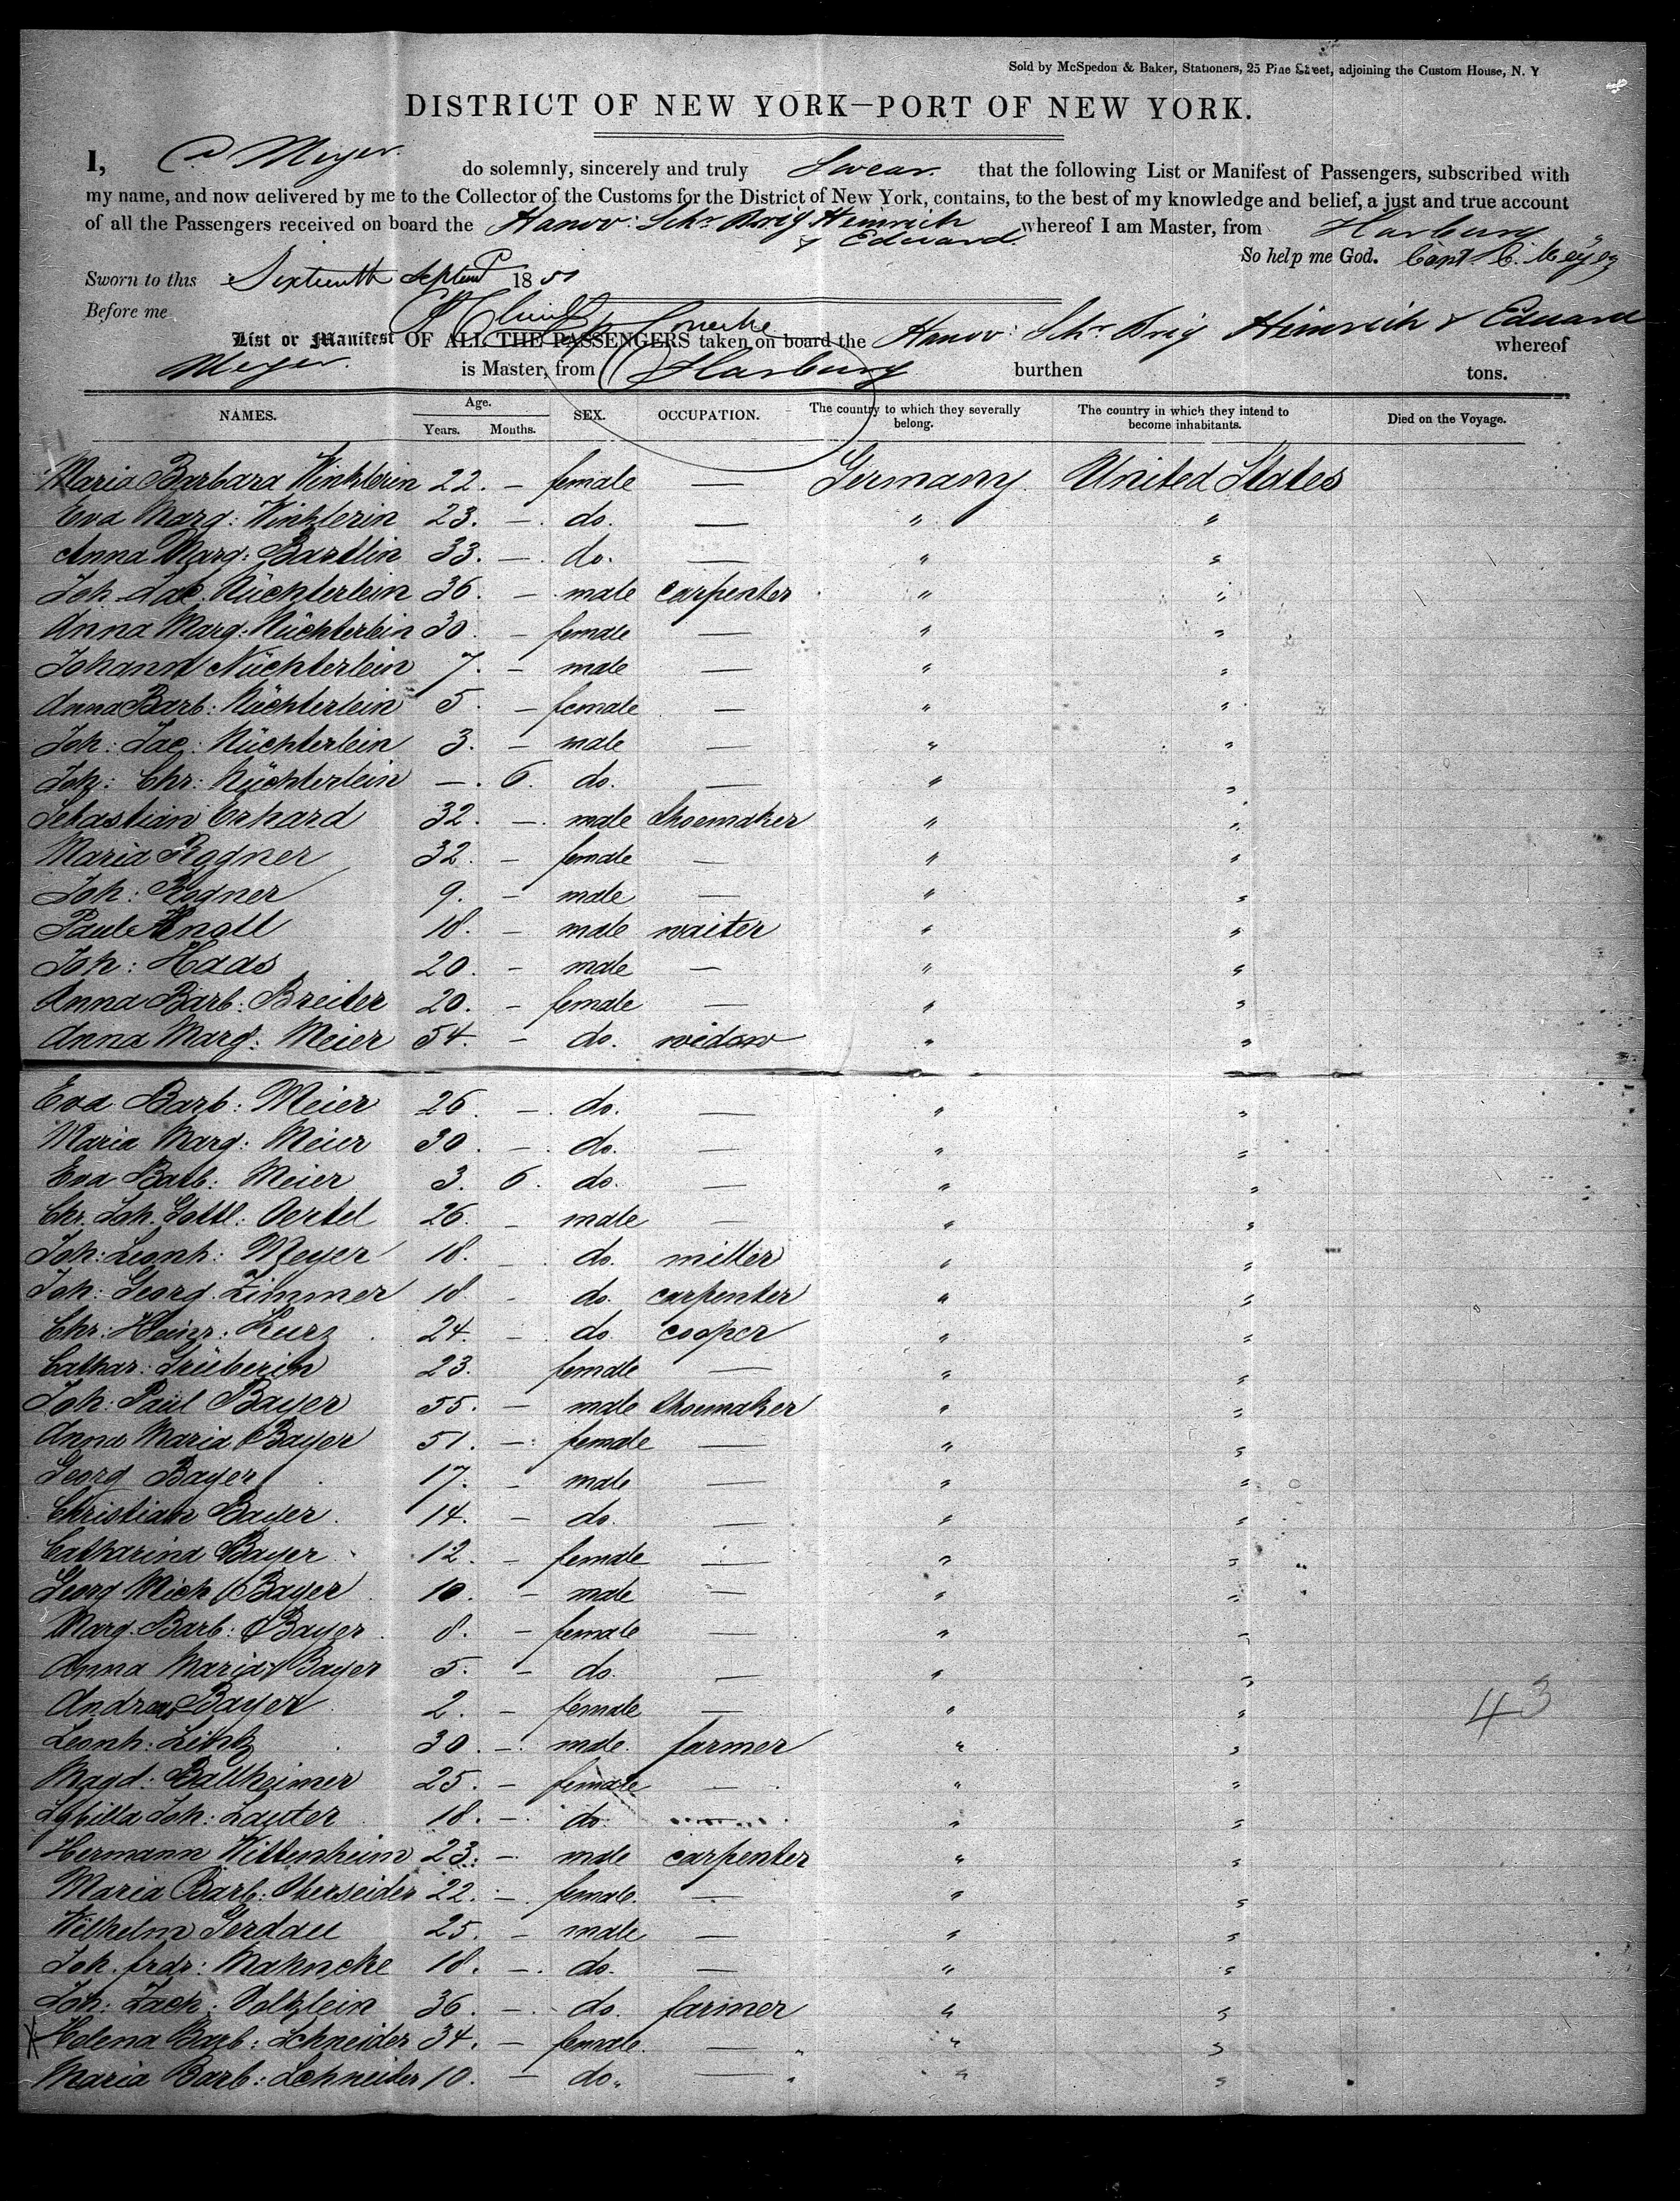 Sold by McSpedon & Baker, Stationers, 25 Pine Street, adjoining the Custom House, N. Y
DISTRICT OF NEW YORK—PORT OF NEW YORK.
I, C. Meyer. do solemnly, sincerely and truly Swear. that the following List or Manifest of Passengers, subscribed with
my name, and now delivered by me to the Collector of the Customs for the District of New York, contains, to the best of my knowledge and belief, a just and true account
of all the Passengers received on board the Hanov: Schr Brig Heinrich & Eduard. whereof I am Master, from Harburg
So help me God. Capt. C. Meyer
Sworn to this Sixteenth Septem 1851
Before me
List or Manifest OF ALL THE PASSENGERS taken on board the Hanov: Schr Brig Heinrich & Eduard whereof
Meyer. is Master, from Harburg burthen tons.
NAMES. Age. Years. Months. SEX. OCCUPATION. The country to which they severally belong. The country in which they intend to become inhabitants. Died on the Voyage.
Maria Barbara Winklerin 22. — female — Germany. United States
Eva Marg: Winklerin 23. — do. — " "
Anna Marg: Bartlin 33. — do. — " "
Joh. Jac. Nüchterlein 36. — male carpenter " "
Anna Marg: Nüchterlein 30. — female — " "
Johann Nüchterlein 7. — male — " "
Anna Barb: Nüchterlein 5. — female — " "
Joh: Jac: Nüchterlein 3. — male — " "
Joh: Chr: Nüchterlein —. 6. do. — " "
Sebastian Erhard 32. — male Shoemaker " "
Maria Rogner 32. — female — " "
Joh: Rogner 9. — male — " "
Paul Knoll 18. — male waiter " "
Joh: Haas 20. — male — " "
Anna Barb: Breiter 20. — female — " "
Anna Marg: Meier 54. — do. widow " "
Eva Barb: Meier 26. — do. — " "
Maria Marg: Meier 30. — do. — " "
Eva Barb: Meier 3. 6. do. — " "
Chr. Joh. Gottl: Oertel 26. — male — " "
Joh: Leonh: Meyer 18. — do. miller " "
Joh: Georg. Zimmer 18. — do. carpenter " "
Chr: Heinr: Kurz 24. — do. cooper " "
Cathar: Grüberin 23. female — " "
Joh: Paul Bayer 55. — male Shoemaker " "
Anna Maria Bayer 51. — female — " "
Georg Bayer 17. — male — " "
Christian Bayer. 14. — do. — " "
Catharina Bayer 12. — female — " "
Georg Mich Bayer 10. — male — " "
Marg. Barb: Bayer 8. — female — " "
Anna Maria Bayer 5. — do. — " "
Andreas Bayer 2. — female — " "
43
Leonh: Link 30. — male. farmer " "
Magd: Ballheimer 25. — female — " "
Sybilla Joh: Lauter 18. — do " "
Hermann Wittenheim 23. — male carpenter " "
Maria Barb: Oberseider 22. — female. — " "
Wilhelm Gerdau 25. — male — " "
Joh. frdr: Mahncke 18. — do. — " "
Joh: Zach: Volklein 36. — do. farmer " "
X Helena Barb: Schneider 34. — female. — " "
Maria Barb: Schneider 10. — do. — " "